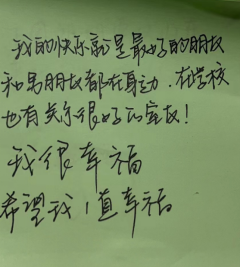 我的快乐就是最好的朋友
和男朋友都在身边.在学校
也有关系很好的室友！
我很幸福
希望我一直幸福